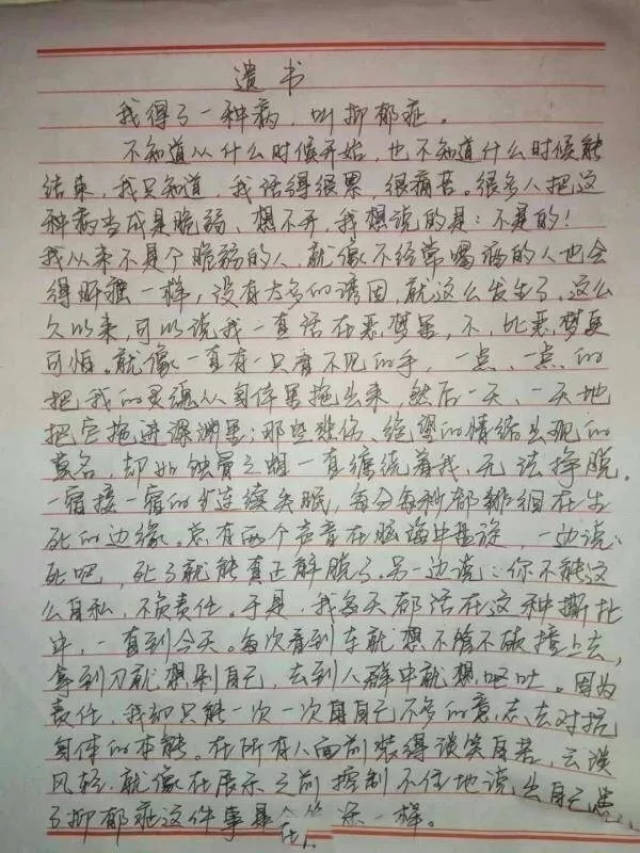 遗书
我得了一种病,叫抑郁症。
不知道从什么时候开始,也不知道什么时候能
结束,我只知道,我活得很累,很痛苦。很多人把这
种病当成是脆弱、想不开,我想说的是:不是的!
我从来不是个脆弱的人,就像不经常喝酒的人也会
得肝癌一样,没有太多的诱因,就这么发生了。这么
久以来,可以说我一直活在恶梦里,不,比恶梦更
可怕。就像一直有一只看不见的手,一点、一点的
把我的灵魂从身体里拖出来,然后一天、一天地
把它拖进深渊里;那些悲伤、绝望的情绪出现的
莫名,却如蚀骨之蛆一直缠绕着我,无法挣脱。
一宿接一宿的连续失眠,每分每秒都徘徊在生
死的边缘。总有两个声音在脑海中盘旋,一边说:
死吧,死了就能真正解脱了。另一边说:你不能这
么自私,不负责任。于是,我每天都活在这种撕扯
中,一直到今天。每次看到车就想不管不顾撞上去,
拿到刀就想剁自己,去到人群中就想呕吐。因为
责任,我却只能一次一次用自己不多的意志去对抗
身体的本能。在所有人面前装得谈笑自若,云淡
风轻,就像在展示之前控制不住地说出自己患
了抑郁症这件事是个笑话一样。